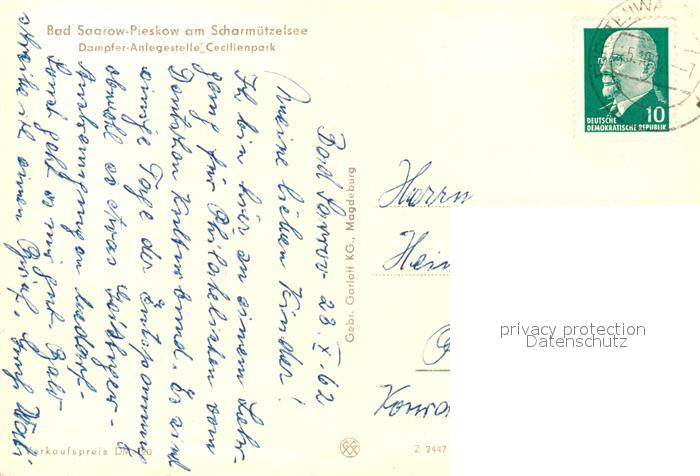 Bad Saarow-Pieskow am Scharmützelsee
Dampfer-Anlegestelle „Cecilienpark
Bad Saarow 23. X. 62
Meine lieben Kinder!
Ich bin hier zu einem Lehr-
gang für Philatelisten vom
Deutschen Kulturbund. Es sind
einige Tage der Entspannung
obwohl es etwas
Anstrengungen bedarf.
Sonst geht es mir gut. Bald
schreibe ich einen Brief.
Verkaufspreis DM
Gebr. Garloff KG., Magdeburg
Z 2447
10
DEUTSCHE
DEMOKRATISCHE REPUBLIK
Herrn
Hein
Konra
privacy protection
Datenschutz